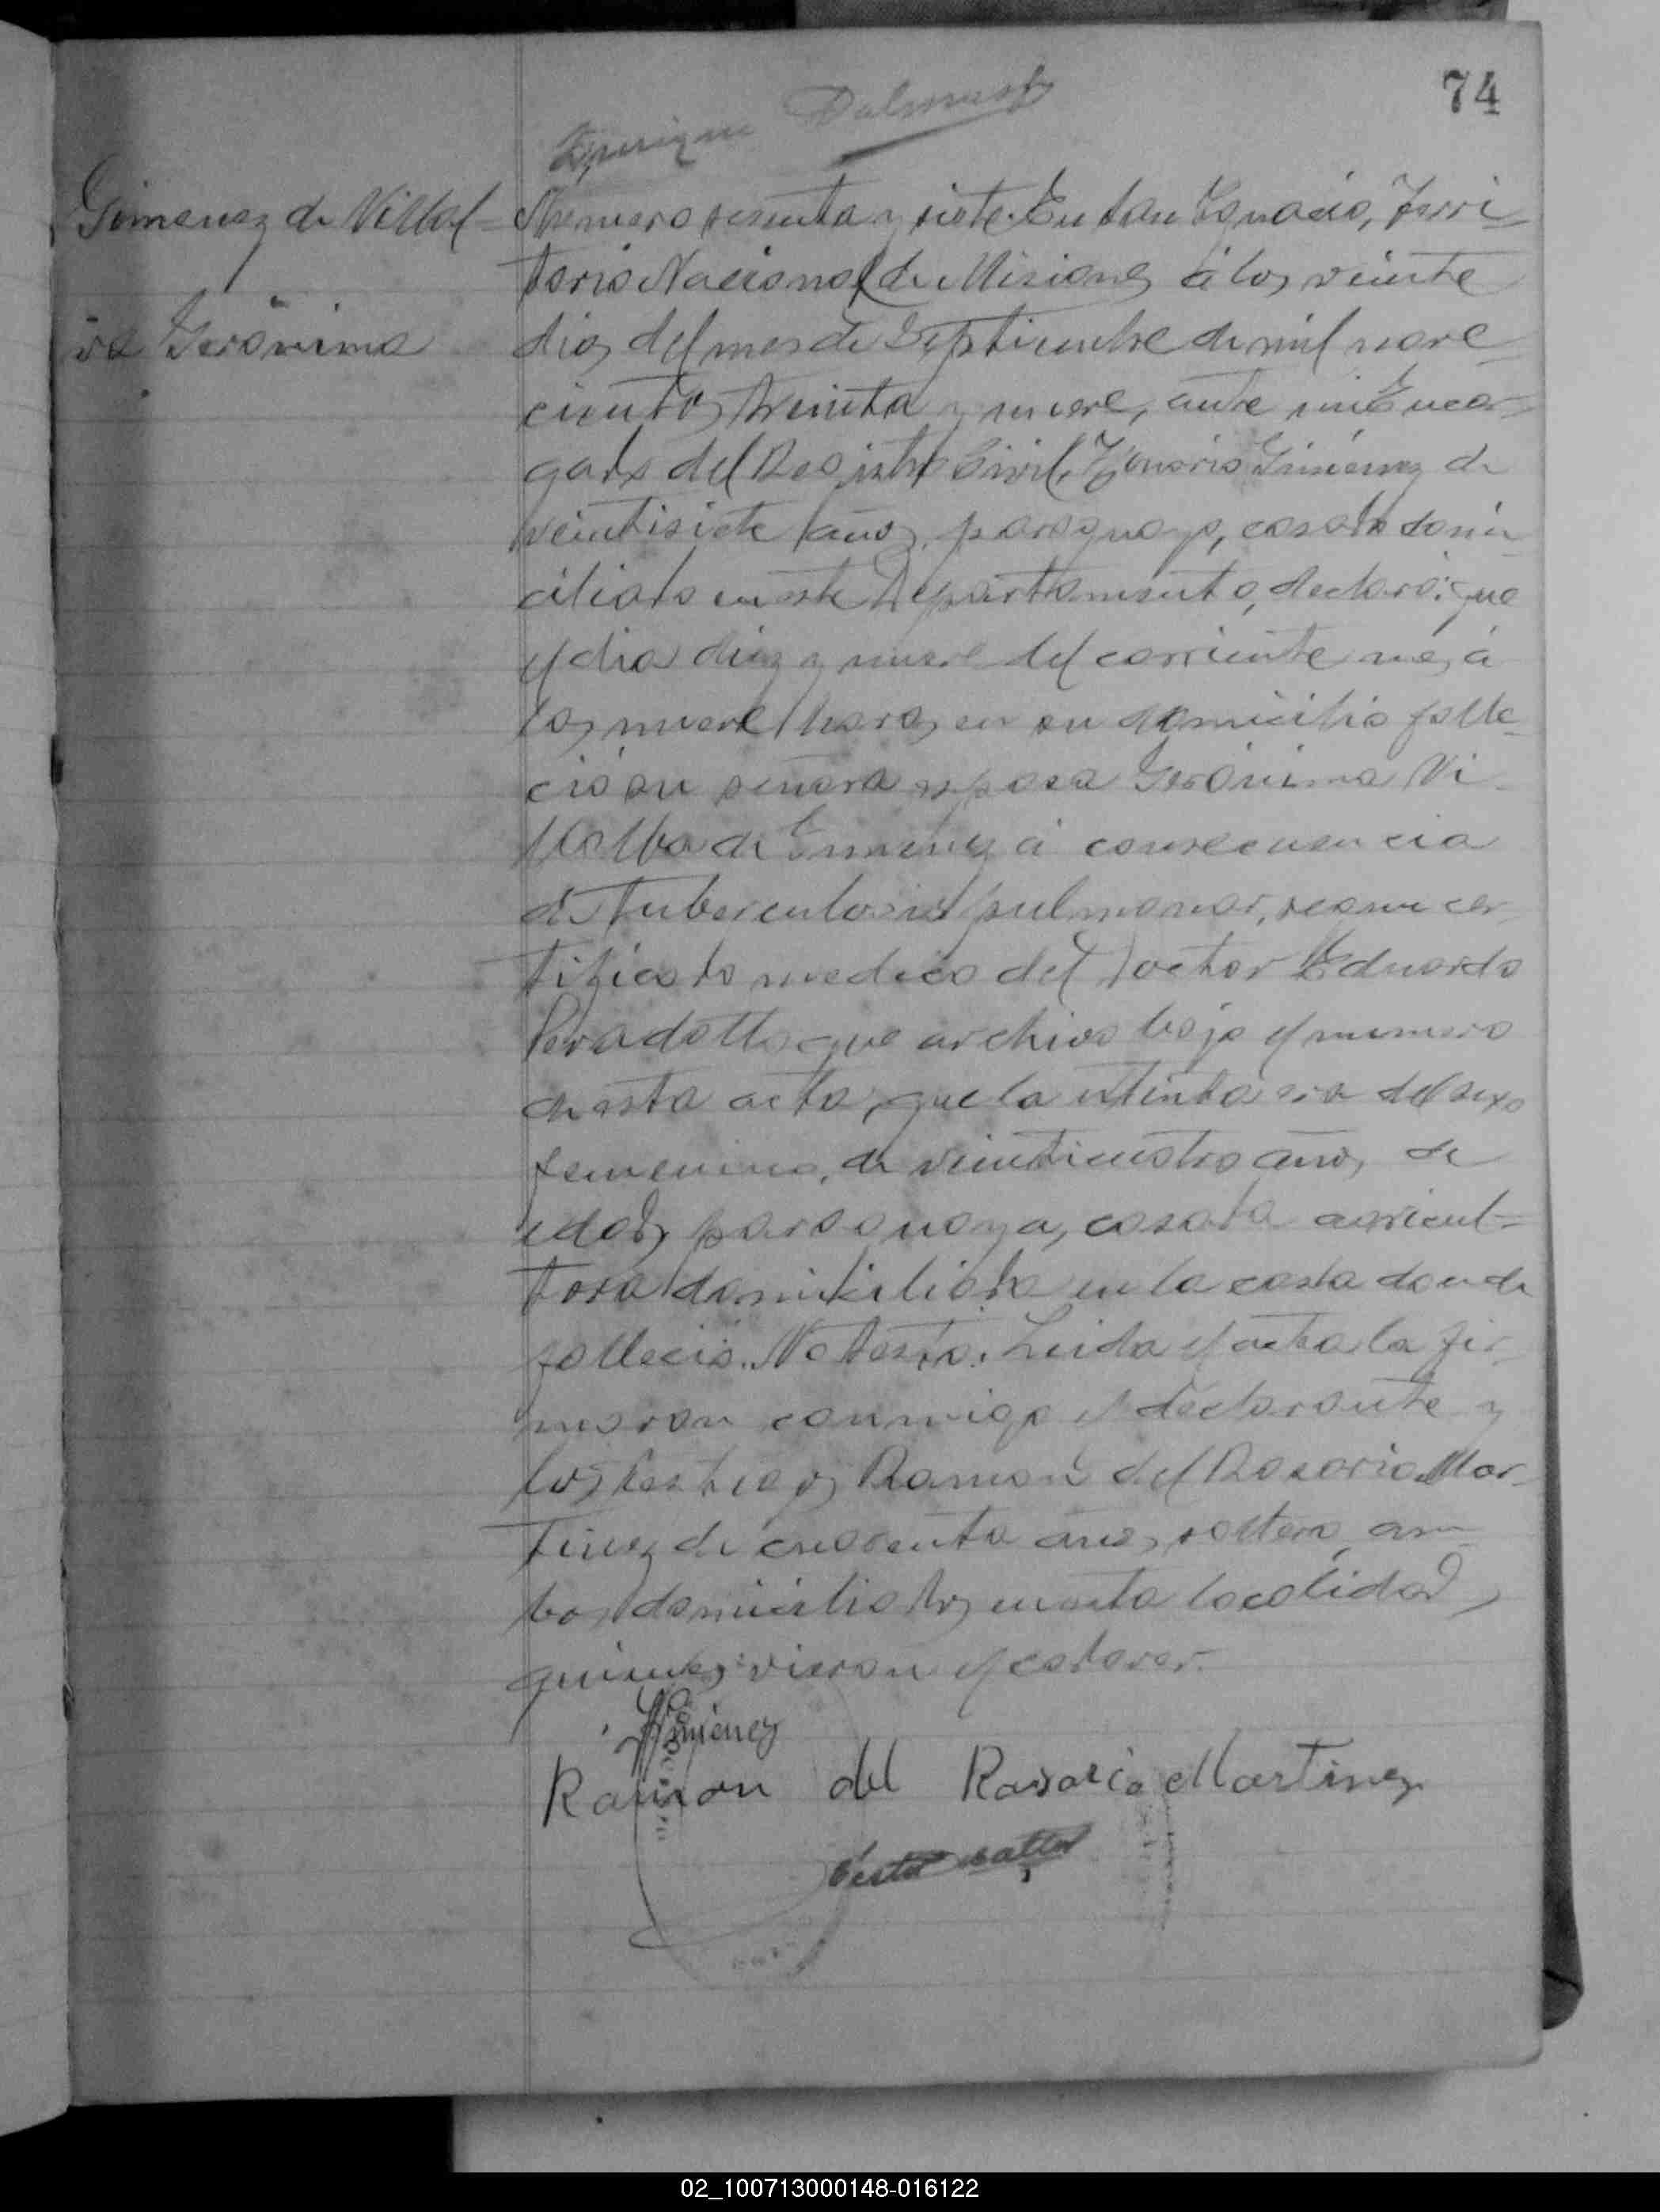 74
Enrique
Gimenez de Villal=
ba Gerónima
Numero sesenta y siete. En San Ignacio, Terri-
torio Nacional de Misiones á los veinte
dias del mes de Septiembre de mil nove-
cientos treinta y nueve, ante mi Encar-
gado del Registro Civil, Giménez de
veintisiete años, paraguayo, casado domi-
ciliado en este Departamento, declaró: que
el dia diez y nueve del corriente mes á
las nueve horas en su domicilio falle-
ció su señora esposa Gerónima Vi-
llalba de Gimenez á consecuencia
de tuberculosis pulmonar, segun cer-
tificado medico del Doctor Eduardo
que archivo bajo el numero
de esta acta, que la extinta era del sexo
femenino, de veinticuatro años de
edad, paraguaya, casada agricul=
tora domiciliada en la casa donde
falleció. No testó. Leida el acta la fir-
maron conmigo el declarante y
los testigos Ramón del Rosario Mar-
tinez de cuarenta años, soltero, am-
bos domiciliados en esta localidad,
quienes vieron el cadaver.-
Gimenez
Ramon del Rosario Martinez
02_100713000148-016122